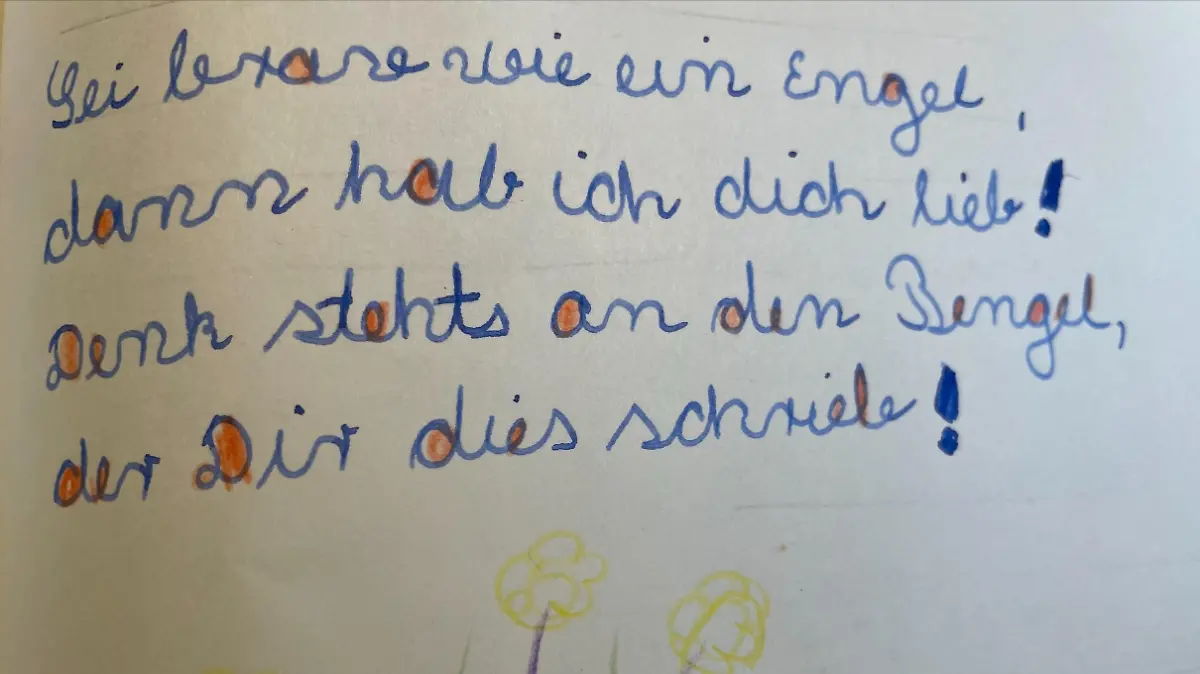 Sei brav wie ein Engel,
dann hab ich dich lieb!
Denk stehts an den Bengel,
der Dir dies schrieb!